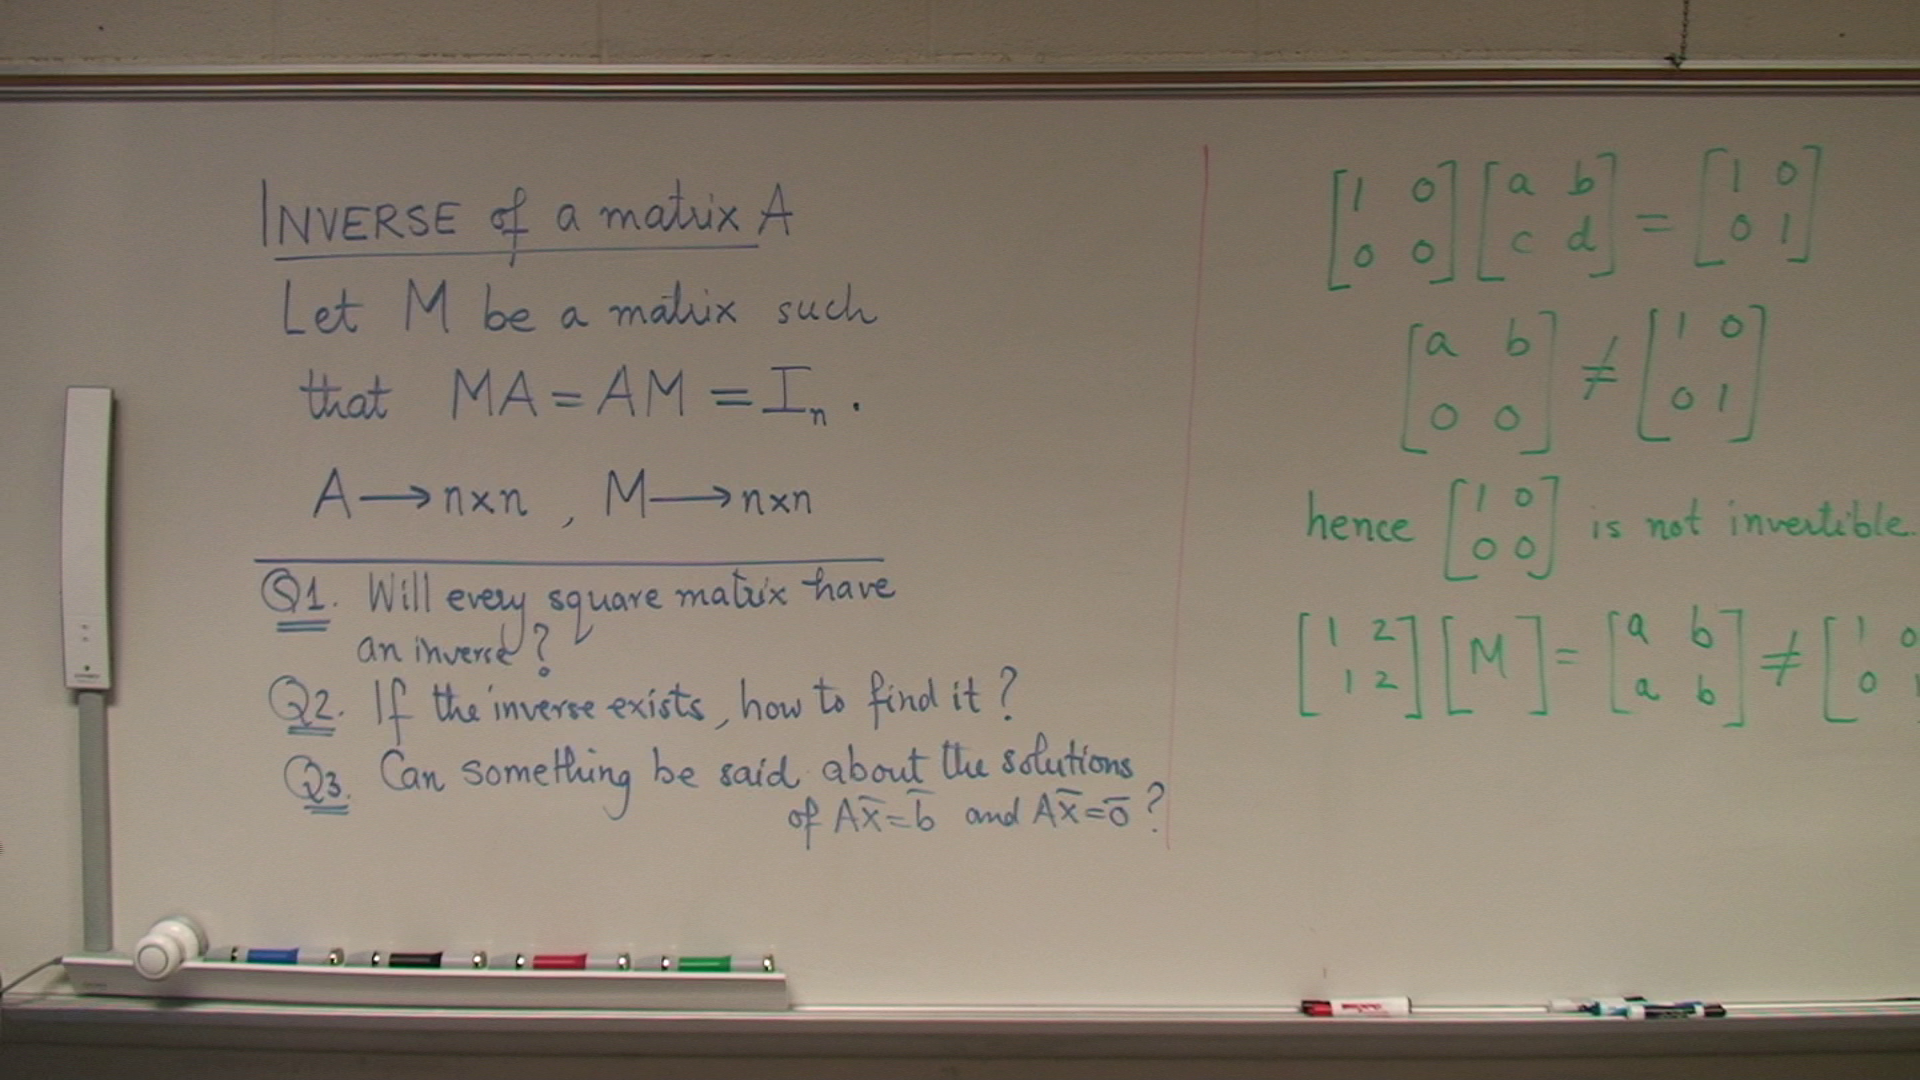 INVERSE of a matrix A
Let M be a matrix such
that MA = AM = Iₙ .
A → n×n , M → n×n
Q1. Will every square matrix have
an inverse?
Q2. If the inverse exists, how to find it?
Q3. Can something be said about the solutions
of Ax̄ = b̄ and Ax̄ = ō ?
[1 0; 0 0] [a b; c d] = [1 0; 0 1]
[a b; 0 0] ≠ [1 0; 0 1]
hence [1 0; 0 0] is not invertible.
[1 2; 1 2] [M] = [a b; a b] ≠ [1 0; 0 1